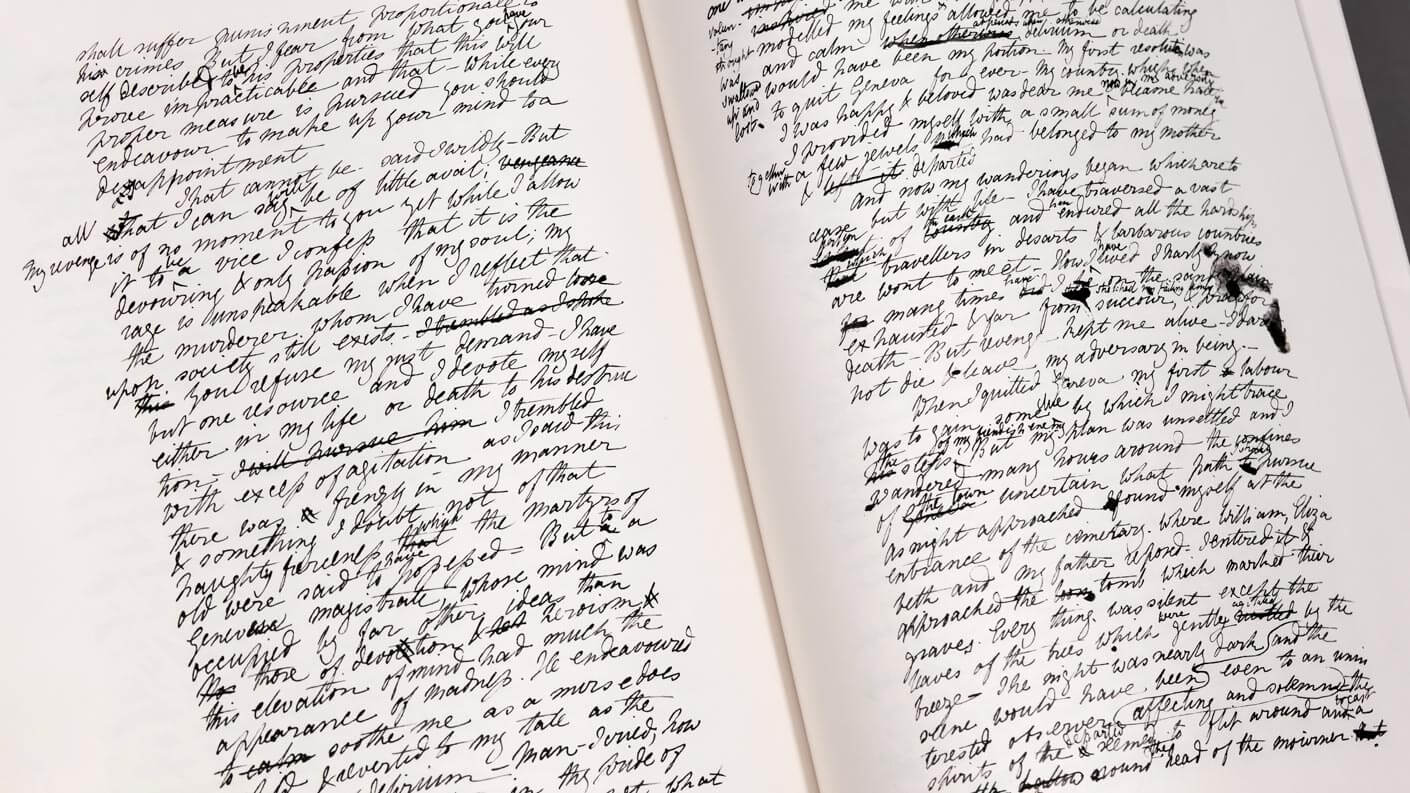 shall suffer punishment proportionate to
his crimes But I fear from what you have your
self described to be his properties that this will
prove impracticable and that - while every
proper measure is pursued you should
endeavour to make up your mind to a
disappointment
That cannot be - said I wildly - But
all that I can say will be of little avail; vengeance
My revenge is of no moment to you yet while I allow
it to be a vice I confess that it is the
devouring & only passion of my soul; my
rage is unspeakable when I reflect that
the murderer, whom I have turned loose
upon society still exists. I trembled as I spoke
this You refuse my just demand - I have
but one resource and I devote myself
either in my life or death to his destruc
tion - I will pursue him I trembled
with excess of agitation as I said this
there was a frenzy in my manner
& something I doubt not of that
haughty fierceness that which the martyrs of
old were said to have possessed - But to a
Genevese magistrate whose mind was
occupied by far other ideas than
those of devotion & heroism
this elevation of mind had much the
appearance of madness. He endeavoured
to calm soothe me as a nurse does
& reverted to my tale as the
delirium - Man - I cried, how
in thy pride of
what
one
me with
volun-
-tary
thought
was
swallowed
up and
lost.
modelled my feelings & allowed me to be calculating
and calm when otherwise at periods when otherwise delirium or death
would have been my portion - My first resolution was
to quit Geneva for ever - My country which when
I was happy & beloved was dear to me now became hate
I provided myself with a small sum of money
together with a few jewels which had belonged to my mother
& departed
And now my wanderings began which are to
cease but with life - I have traversed a vast
portion of the earth and have endured all the hardships
which travellers in desarts & barbarous countries
are wont to meet - How I have lived I hardly know
many times have I on the sand
exhausted & far from succour, & prayed for
death - But revenge kept me alive - I dared
not die & leave my adversary in being. -
When I quitted Geneva my first labour
was to gain some clue by which I might trace
the steps of my fiendish enemy. But my plan was unsettled and I
wandered many hours around the confines
of the town uncertain what path to pursue
As night approached I found myself at the
entrance of the cimetary where William, Eliza
beth and my father reposed. I entered it &
approached the tomb which marked their
graves. Every thing was silent except the
leaves of the trees which were gently agitated by the
breeze - The night was nearly dark and the
scene would have been even to an unin
terested observer affecting and solemn the
spirits of the departed seemed to flit around and to cast a
around head of the mourner